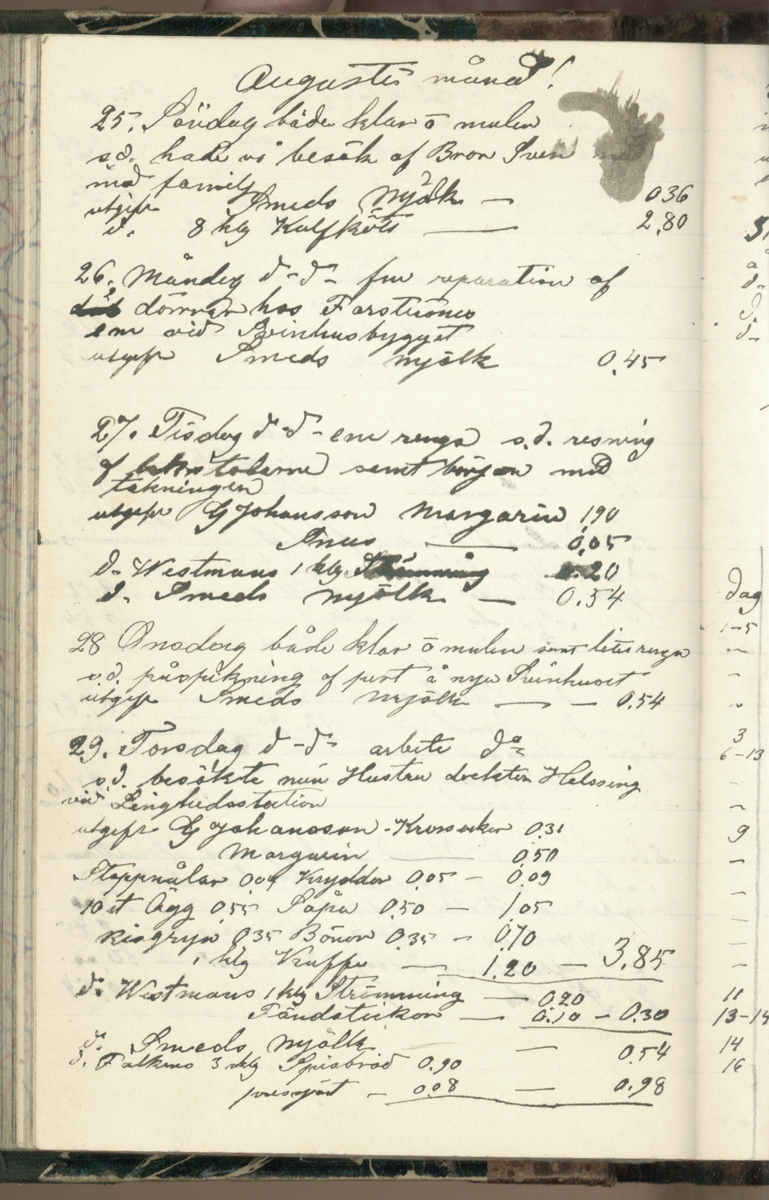 Augusti månad!
25. Söndag både klar o mulen
s.d. hade vi besök af Bror Sven
med familj
utgift Smeds Mjölk — 036
d. 8 kg Kalfkött — 2.80
26. Måndag d-d- fm reparation af
dörrar hos Forströnes
em vid Svinhusbygget
utgift Smeds mjölk 0,45
27. Tisdag d-d- em regn s.d. resning
af takstolarne samt början med
täkningen
utgift G Johansson Margarin 190
Snus — 0,05
d. Westmans 1 kg Strömming 0.20
d. Smeds mjölk — 0.54
28 Onsdag både klar o mulen samt lite regn
s.d. påspikning af pert å nya Svinhuset
utgift Smeds mjölk — — 0.54
29. Torsdag d-d- arbete do
s.d. besökte min Hustru doktor Helssing
vid Linghedsstation
utgift G Johansson - Krossocker 0.31
Margarin — 0,50
Stoppnålar 004 Kryddor 0.05 — 0.09
10 st Ägg 0,55 Såpa 0.50 — 1,05
Risgryn 0.35 Bönor 0.35 — 0,70
1 kg Kaffe — 1.20 — 3,85
d. Westmans 1 kg Strömming — 0.20
Tändstickor — 0.10 — 0.30
d. Smeds mjölk — 0.54
d. Falkens 3 kg Spisbröd 0.90
pressjäst — 0.08 — 0.98
dag
1-5
3
6-13
9
11
13-14
14
16